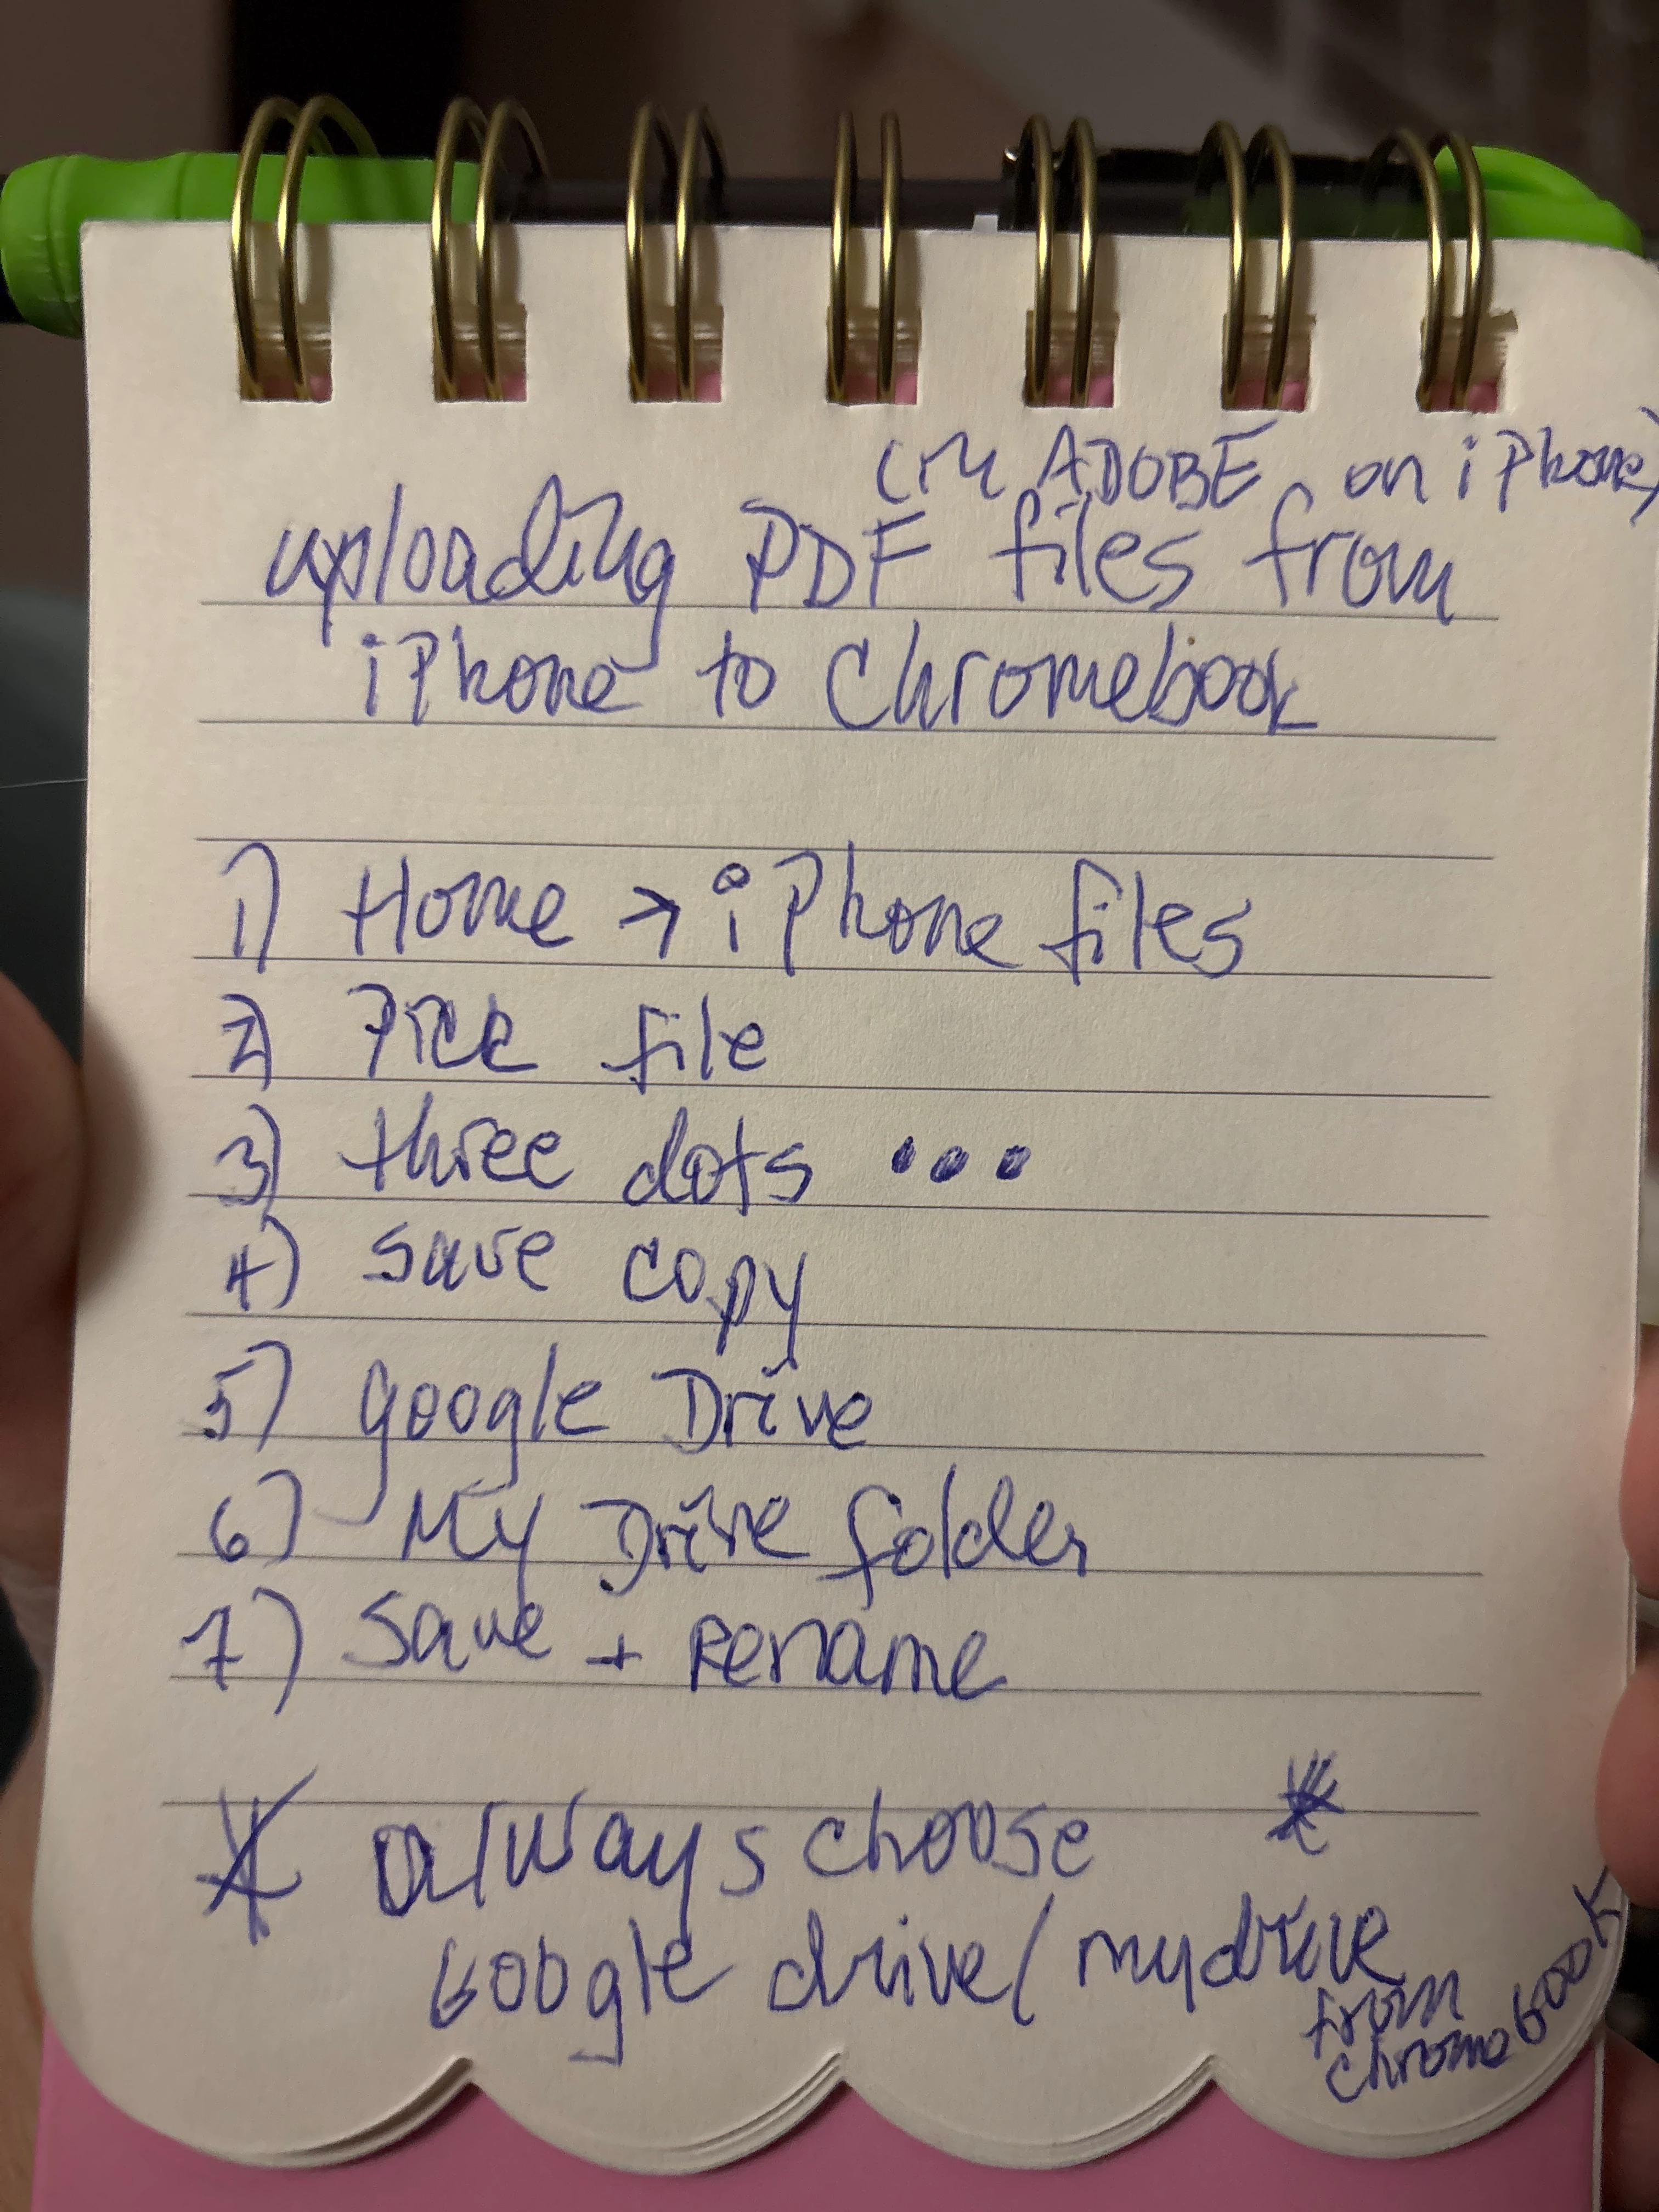 (in ADOBE on iPhone)
uploading PDF files from
iPhone to Chromebook
1) Home → iPhone files
2) Pick file
3) three dots •••
4) save copy
5) google Drive
6) My Drive folder
7) Save + Rename
* always choose *
Google drive/mydrive
from
chromebook